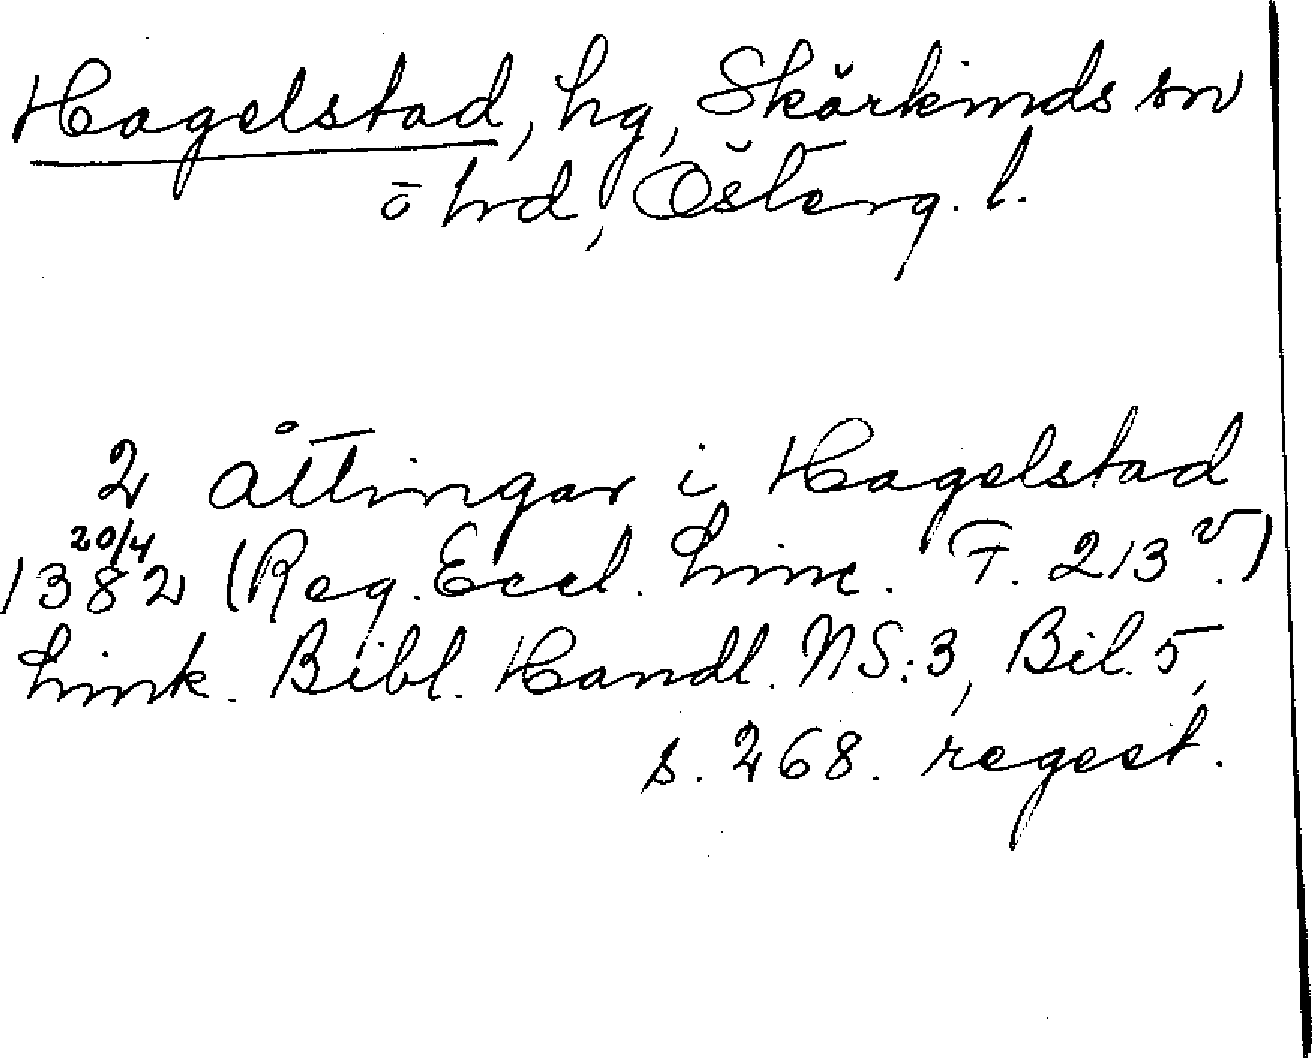 Hagelstad, hg, Skärkinds sn
o hrd, Österg. l.
2 åttingar i Hagelstad
20/4
1382 (Reg. Eccl. Linc. F. 213 v.)
Link. Bibl. Handl. NS:3, Bil. 5,
s. 268. regest.